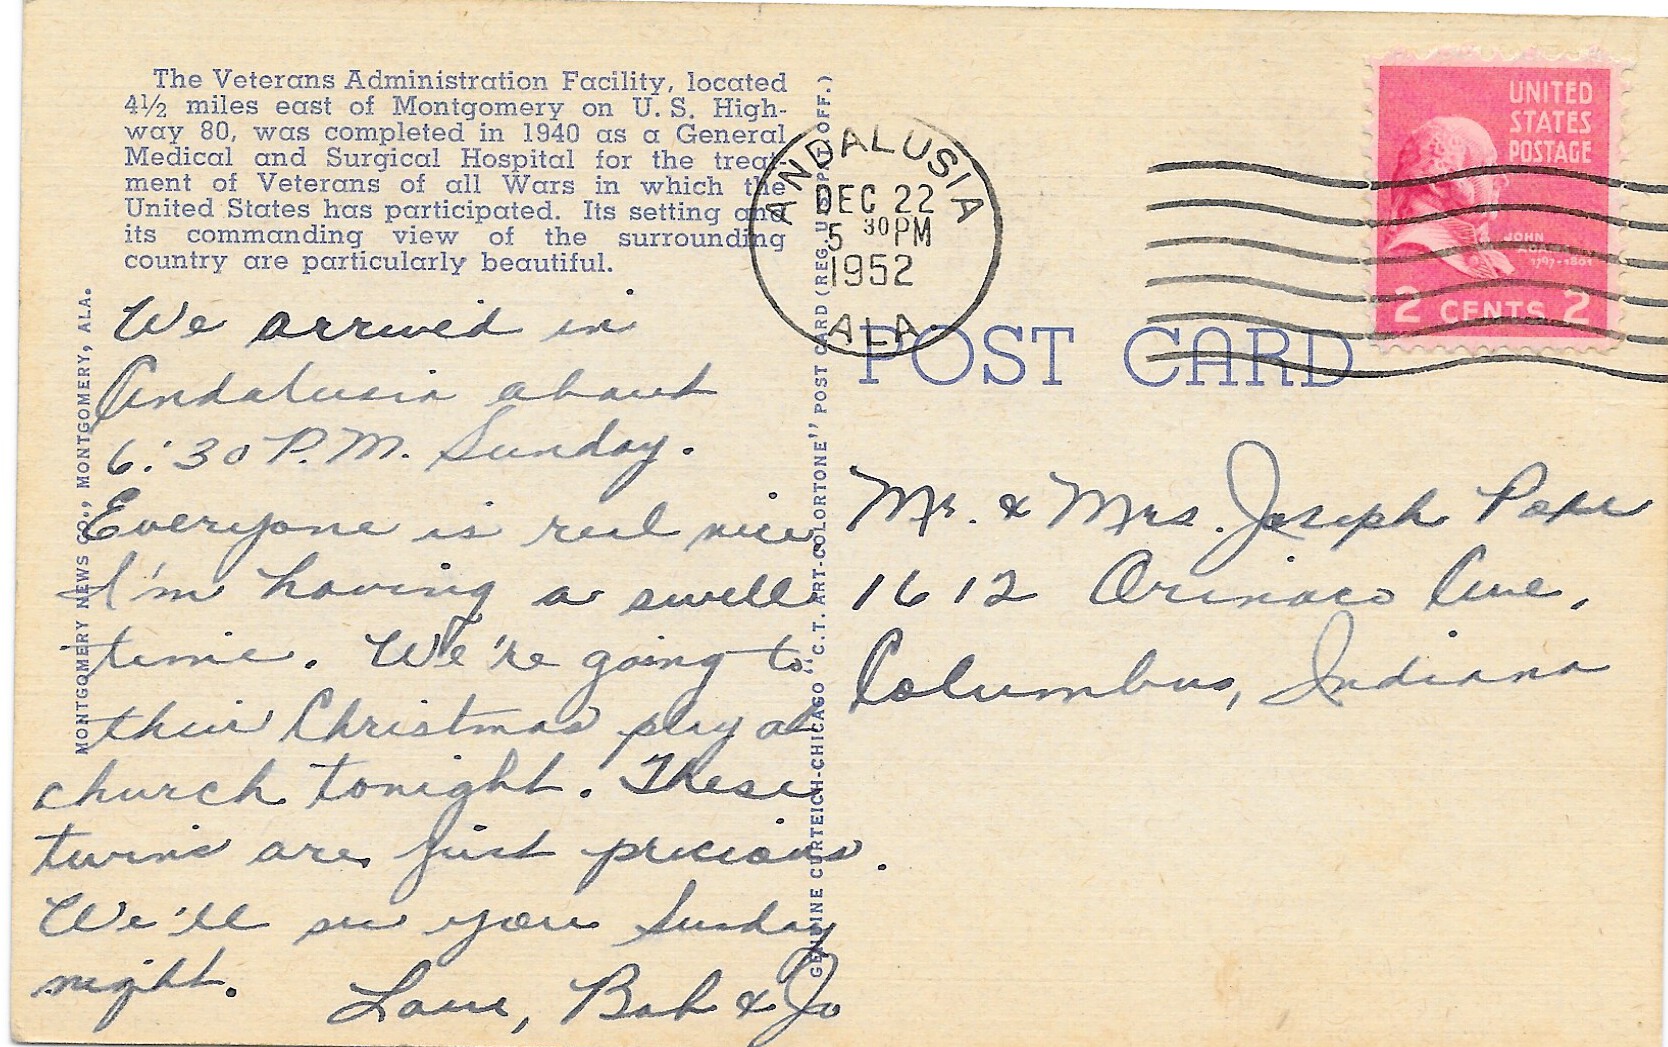 The Veterans Administration Facility, located
4½ miles east of Montgomery on U. S. High-
way 80, was completed in 1940 as a General
Medical and Surgical Hospital for the treat-
ment of Veterans of all Wars in which the
United States has participated. Its setting and
its commanding view of the surrounding
country are particularly beautiful.
MONTGOMERY NEWS CO., MONTGOMERY, ALA.
We arrived in
Andalusia about
6:30 P.M. Sunday.
Everyone is real nice.
I'm having a swell
time. We're going to
their Christmas play at
church tonight. These
twins are just precious.
We'll see you Sunday
night.
Love, Bob & Jo
GENUINE CURTEICH-CHICAGO "C.T. ART-COLORTONE" POST CARD (REG. U.S. PAT. OFF.)
ANDALUSIA
DEC 22
5 30 PM
1952
ALA
POST CARD
UNITED
STATES
POSTAGE
JOHN
ADAMS
1797-1801
2 CENTS 2
Mr. & Mrs. Joseph Pope
1612 Orinoco Ave,
Columbus, Indiana